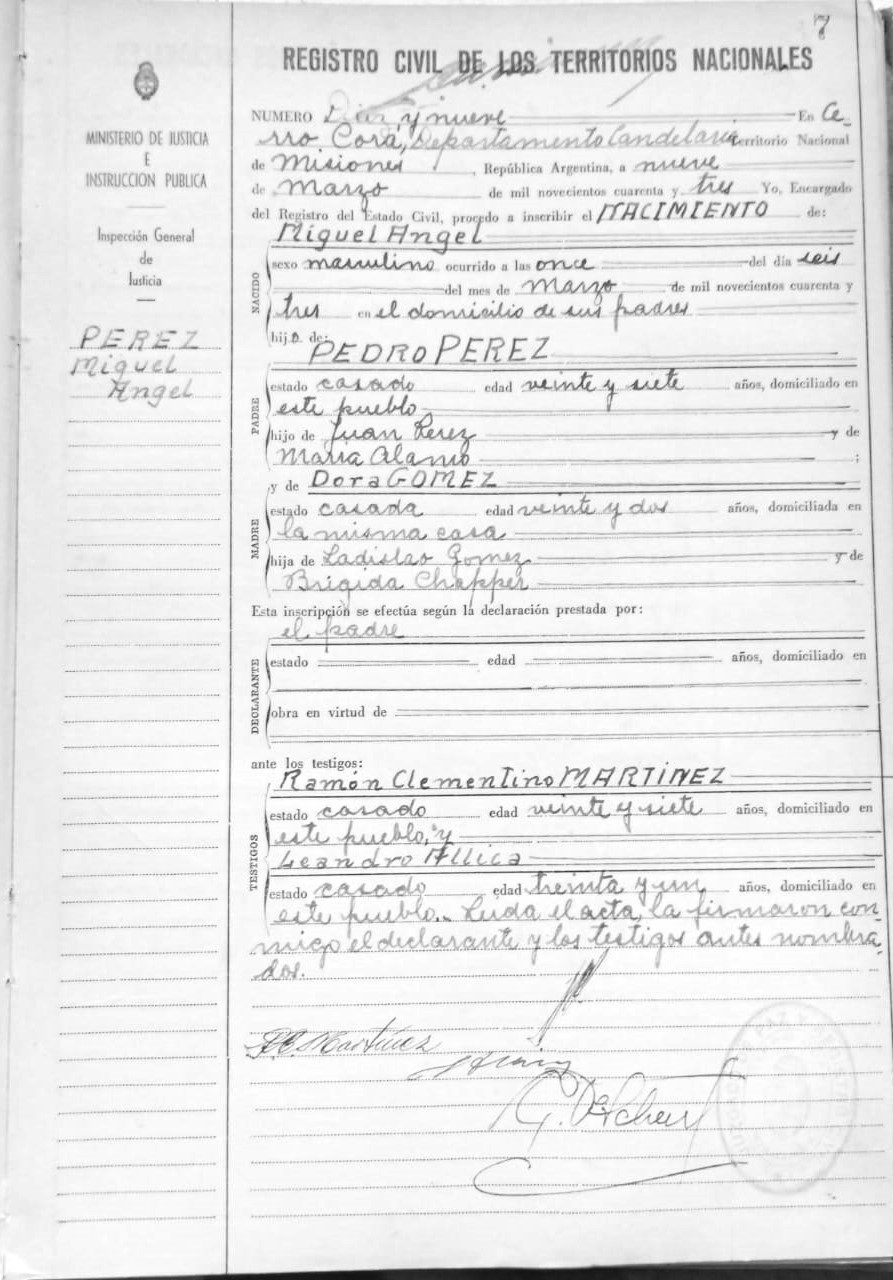 7
REGISTRO CIVIL DE LOS TERRITORIOS NACIONALES
MINISTERIO DE JUSTICIA
E
INSTRUCCION PUBLICA
Inspección General
de
Justicia
PEREZ
Miguel
Angel
NUMERO Diez y nueve En Ce-
rro Corá, Departamento Candelaria Territorio Nacional
de Misiones, República Argentina, a nueve
de Marzo de mil novecientos cuarenta y tres Yo, Encargado
del Registro del Estado Civil, procedo a inscribir el NACIMIENTO de:
NACIDO
Miguel Angel
sexo masculino ocurrido a las once del día seis
del mes de Marzo de mil novecientos cuarenta y
tres en el domicilio de sus padres
hijo de:
PEDRO PEREZ
PADRE
estado casado edad veinte y siete años, domiciliado en
este pueblo
hijo de Juan Perez y de
Maria Alamo ;
y de Dora GOMEZ
MADRE
estado casada edad veinte y dos años, domiciliada en
la misma casa
hija de Ladislao Gomez y de
Brigida Chapper
Esta inscripción se efectúa según la declaración prestada por:
el padre
DECLARANTE
estado edad años, domiciliado en
obra en virtud de
ante los testigos:
TESTIGOS
Ramón Clementino MARTINEZ
estado casado edad veinte y siete años, domiciliado en
este pueblo, y
Leandro Allica
estado casado edad treinta y un años, domiciliado en
este pueblo. Leida el acta, la firmaron con-
migo el declarante y los testigos antes nombra-
dos.
R C Martinez